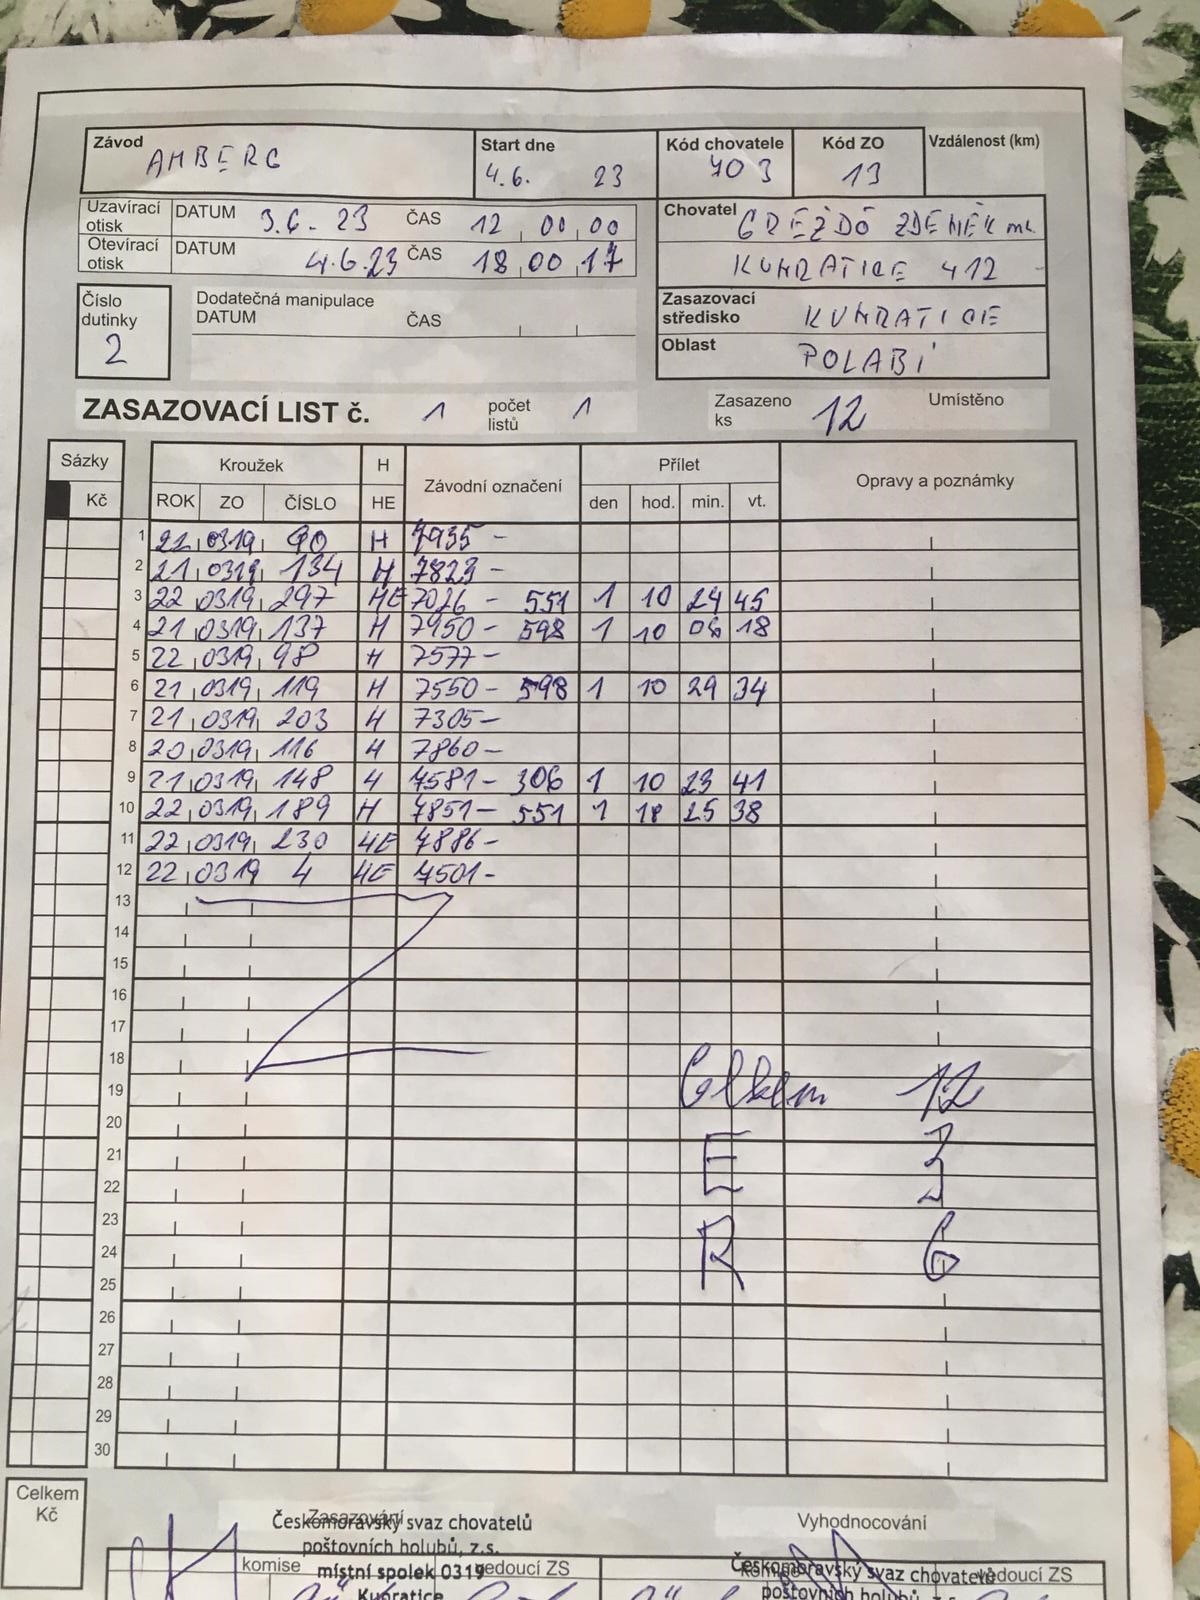 Závod AMBERG Start dne 4.6. 23 Kód chovatele 703 Kód ZO 13 Vzdálenost (km)
Uzavírací otisk DATUM 3.6.23 ČAS 12,00,00
Otevírací otisk DATUM 4.6.23 ČAS 18,00,17
Chovatel GREŽDO ZDENĚK ml.
KUNRATICE 412
Číslo dutinky 2
Dodatečná manipulace
DATUM ČAS
Zasazovací středisko KUNRATICE
Oblast POLABÍ
ZASAZOVACÍ LIST č. 1 počet listů 1 Zasazeno ks 12 Umístěno
Sázky Kroužek H Závodní označení Přílet Opravy a poznámky
Kč ROK ZO ČÍSLO HE den hod. min. vt.
1 21 0319 90 H 7935 -
2 21 0319 134 H 7823 -
3 22 0319 297 HE 7026 - 551 1 10 24 45
4 21 0319 137 H 7950 - 598 1 10 06 18
5 22 0319 98 H 7577 -
6 21 0319 119 H 7550 - 598 1 10 29 34
7 21 0319 203 H 7305 -
8 20 0319 116 H 7860 -
9 21 0319 148 H 7581 - 306 1 10 23 41
10 22 0319 189 H 7851 - 551 1 10 25 38
11 22 0319 230 HE 7886 -
12 22 0319 4 HE 7501 -
13
14
15
16
17
18
19 Celkem 12
20
21 E 3
22
23
24 R 6
25
26
27
28
29
30
Celkem Kč
Zasazování
Českomoravský svaz chovatelů
poštovních holubů, z.s.
komise místní spolek 0319 vedoucí ZS
Kunratice
Vyhodnocování
Českomoravský svaz chovatelů
komise vedoucí ZS
poštovních holubů, z.s.